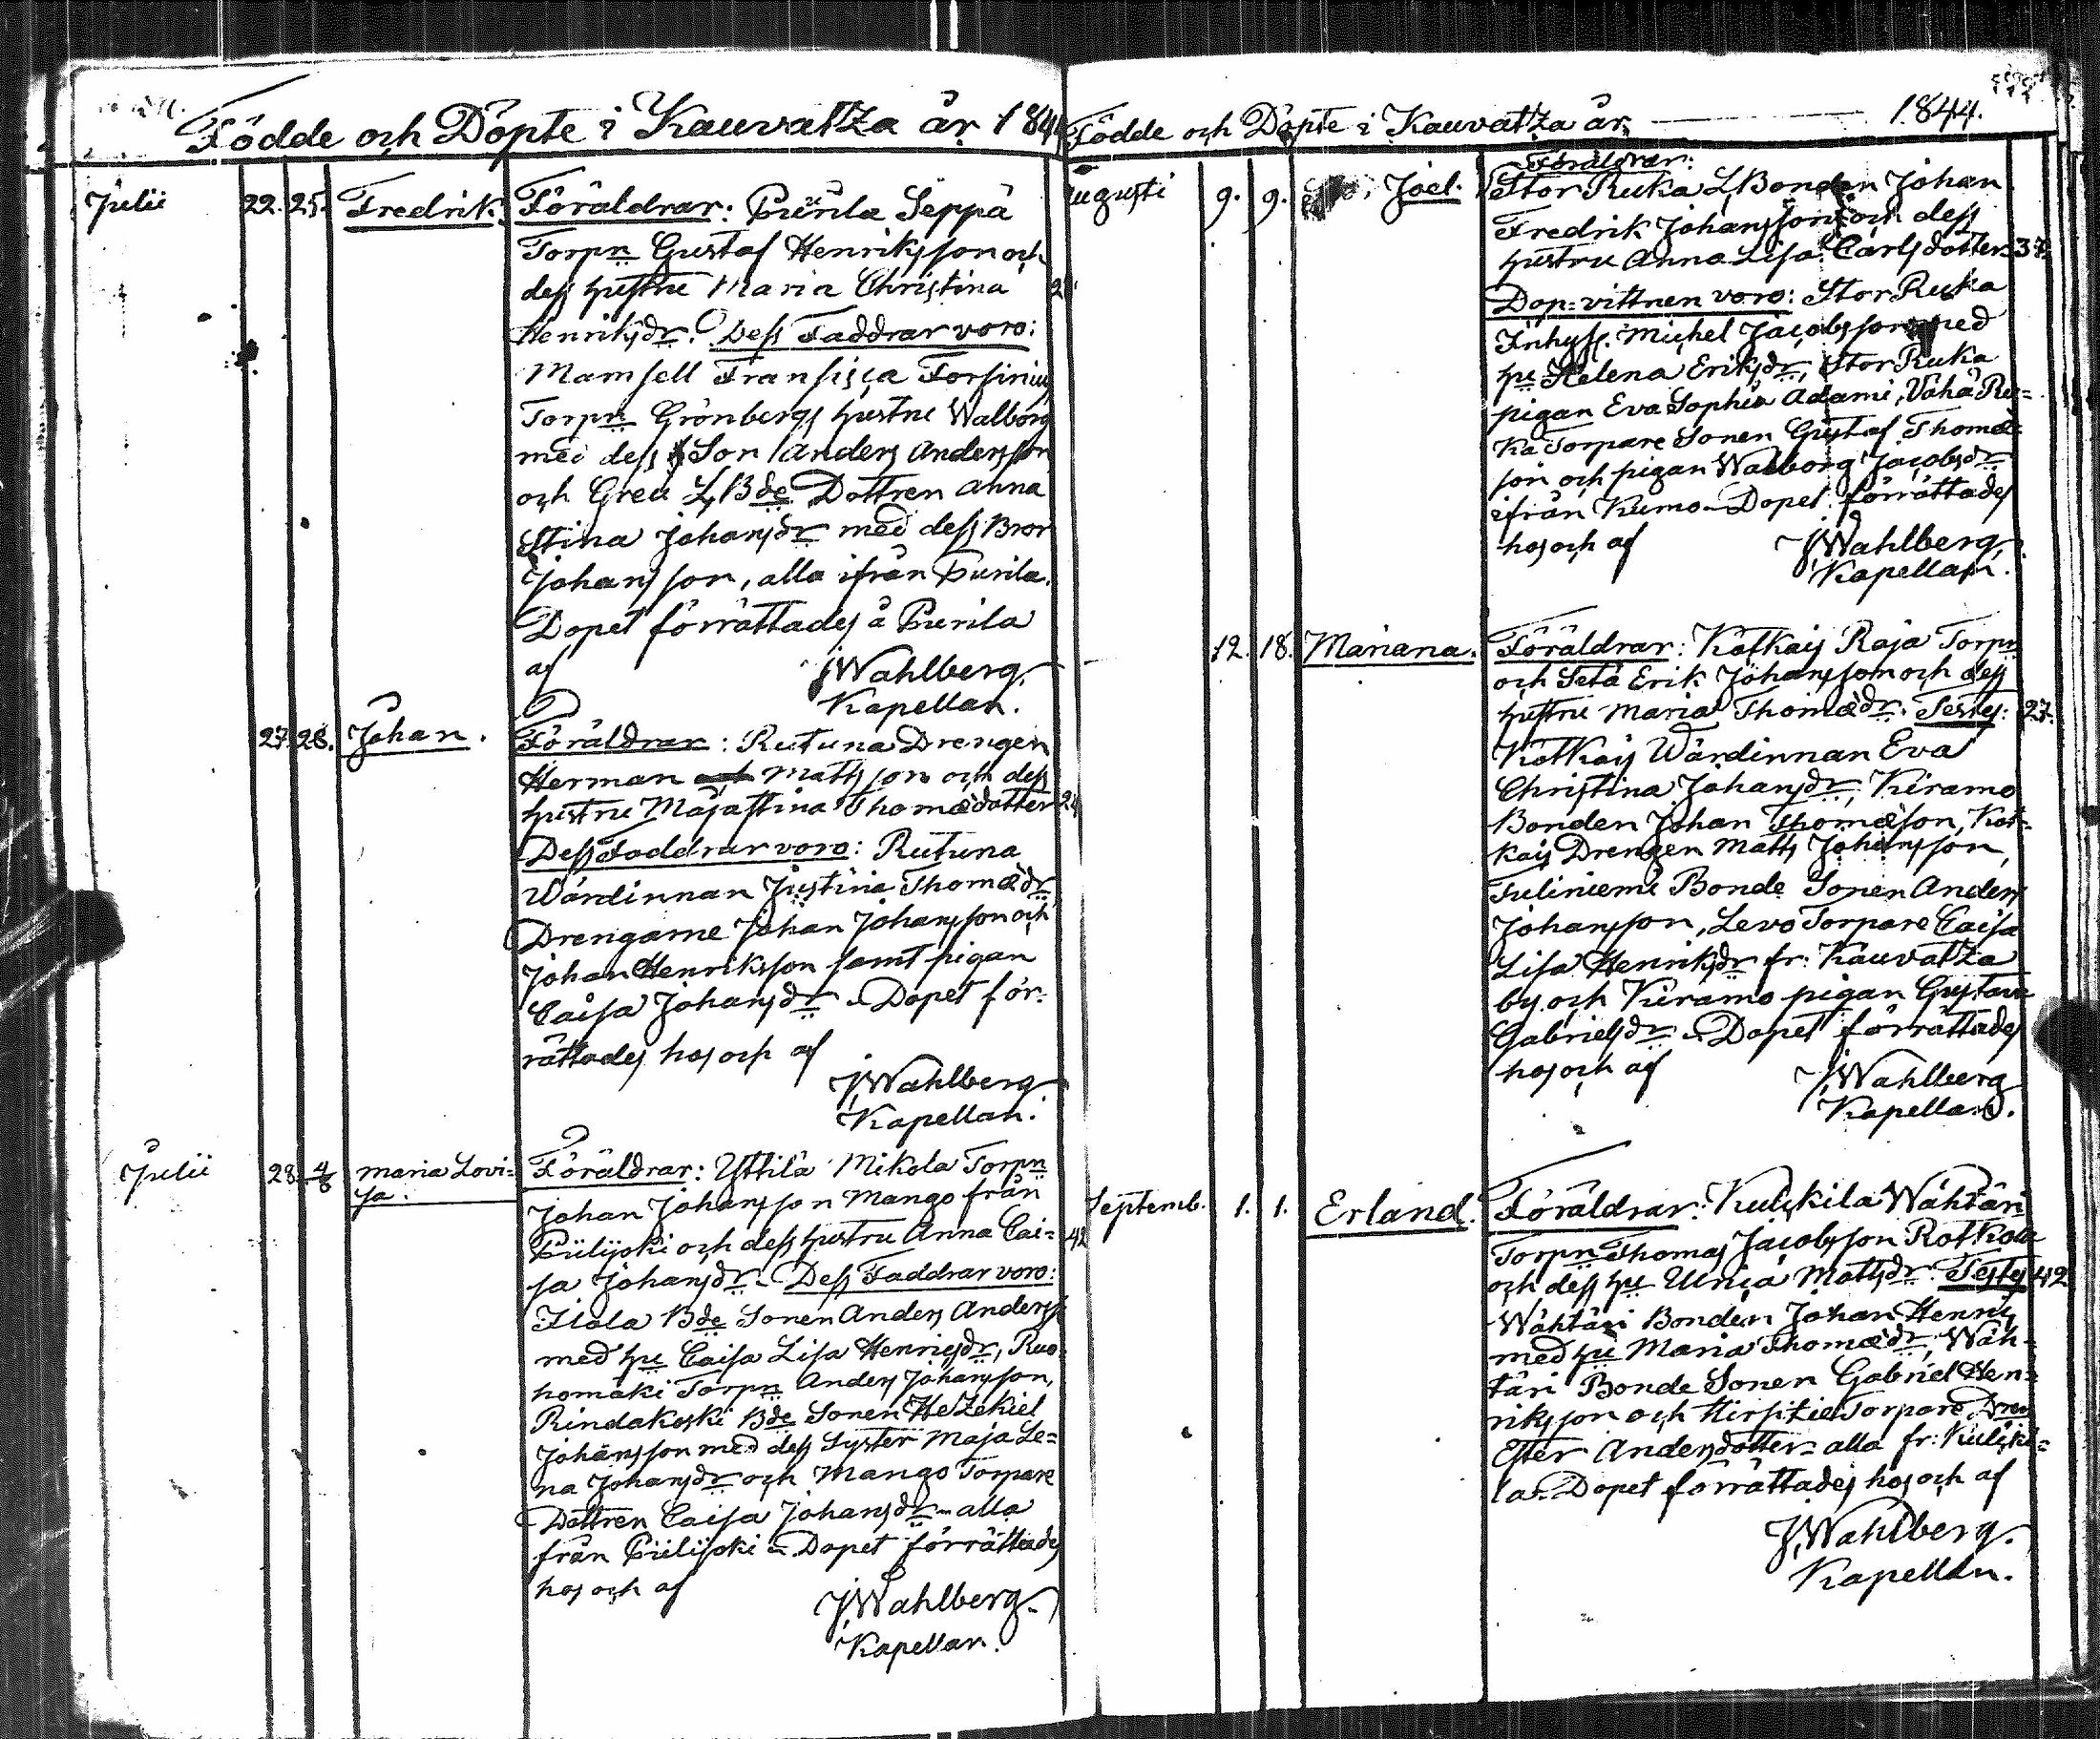 Födde och Döpte i Kauvatza år 184
Julii 22. 25. Fredrik. Föräldrar: Purila Seppä
Torpn Gustaf Henriksson och
dess hustru Maria Christina
Henriksdr. Dess Faddrar voro:
Mamsell Fransisca Forsinius
Torpn Grönbergs hustru Walborg
med dess Son Anders Andersson
och Greu L Bde Dottren Anna
Stina Johansdr med dess Bror
Johansson, alla ifrån Purila.
Dopet förrättades å Purila
af JWahlberg.
Kapellan.
27. 28. Johan. Föräldrar: Rutuna Drengen
Herman Mattsson och dess
hustru Majastina Thomædotter
Dess Faddrar voro: Rutuna
Wärdinnan Justina Thomædr
Drengarne Johan Johansson och
Johan Henriksson samt pigan
Caisa Johansdr. Dopet för-
rättades hos och af
JWahlberg
Kapellan.
Julii 28. 4/8 Maria Lovi= Föräldrar: Yttilä Mikola Torpn
sa.
Johan Johansson Mango från
Piilijoki och dess hustru Anna Cai= 42
sa Johansdr. Dess Faddrar voro:
Ilola Bde Sonen Anders Anderss.
med hu Caisa Lisa Henricsdr, Ruo=
homäki Torpn Anders Johansson,
Rindakoski Bde Sonen Hezekiel
Johansson med dess Syster Maja Le=
na Johansdr och Mango Torpare
Dottren Caisa Johansdr alla
från Piilijoki. Dopet förrättades
hos och af JWahlberg.
Kapellan.
Födde och Döpte i Kauvatza år 1844.
Augusti 9. 9. Joel. Föräldrar:
Stor Ruka L Bonden Johan
Fredrik Johansson och dess
hustru Anna Lisa Carlsdotter. 37.
Dop-vittnen voro: Stor Ruka
Inhys. Michel Jacobsson med
hu Helena Eriksdr, Stor Ruka
pigan Eva Sophia Adami, Vähä Ru=
ka Torpare Sonen Gustaf Thomæ
son och pigan Walborg Jacobsdr
ifrån Kumo. Dopet förrättades
hos och af JWahlberg,
Kapellan.
12. 18. Mariana. Föräldrar: Kotkais Raja Torpn
och Seta Erik Johansson och dess
hustru Maria Thomædr. Testes: 27.
Kotkais Wärdinnan Eva
Christina Johansdr, Kiramo
Bonden Johan Thomæson, Kot-
kais Drengen Matts Johansson,
Tuliniemi Bonde Sonen Anders
Johansson, Levo Torpare Caisa
Lisa Henriksdr fr: Kauvatza
by och Kiramo pigan Gustava
Gabrielsdr. Dopet förrättades
hos och af JWahlberg
Kapellan.
Septemb. 1. 1. Erland. Föräldrar: Kulkkila Wähtäri
Torpn Thomas Jacobsson Rotkola
och dess hu Ulrica Mattsdr. Testes 42
Wähtäri Bonden Johan Henriks
med hu Maria Thomædr, Wäh-
täri Bonde Sonen Gabriel Hen-
riksson och Torpare
Ester Andersdotter alla fr: Kulkki=
la. Dopet förrättades hos och af
JWahlberg.
Kapellan.